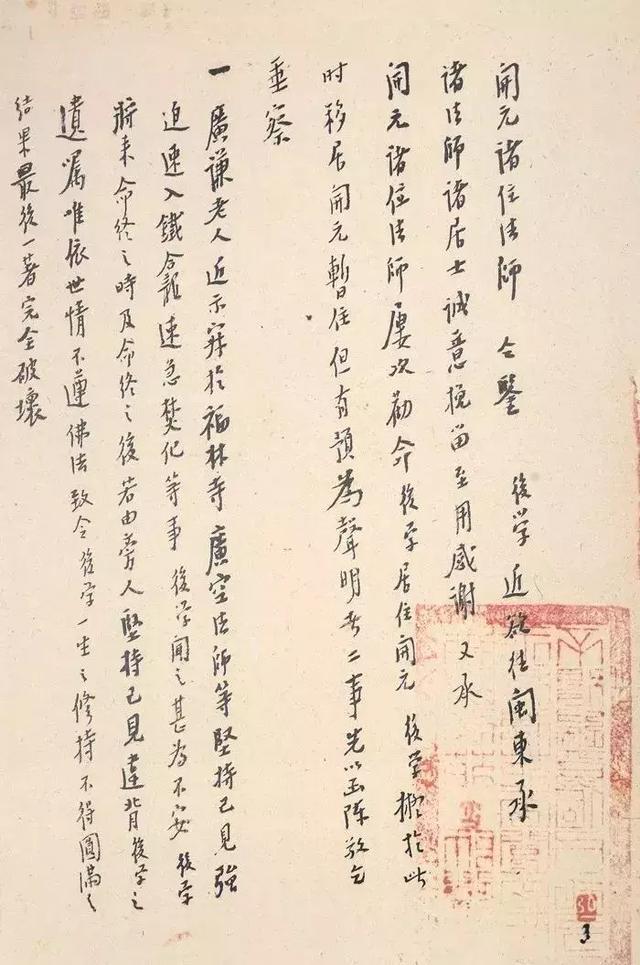 開元諸住法師 仝鑒 後学近欲往閩東承
諸法師諸居士誠意挽留至用感謝又承
開元諸住法師屢次勸命後学居住開元 後学擬於此
时移居開元暫住但有預為聲明者二事先以函陳敬乞
垂察
一 廣謙老人近示寂於福林寺廣空法師等堅持己見強
迫速入鐵合龕速急焚化等事 後学聞之甚為不安 後学
將来命終之時及命終之後若由旁人堅持己見違背後学之
遺囑唯依世情不遵佛法致令後学一生之修持不得圓滿之
结果最後一著完全破壞
30
3